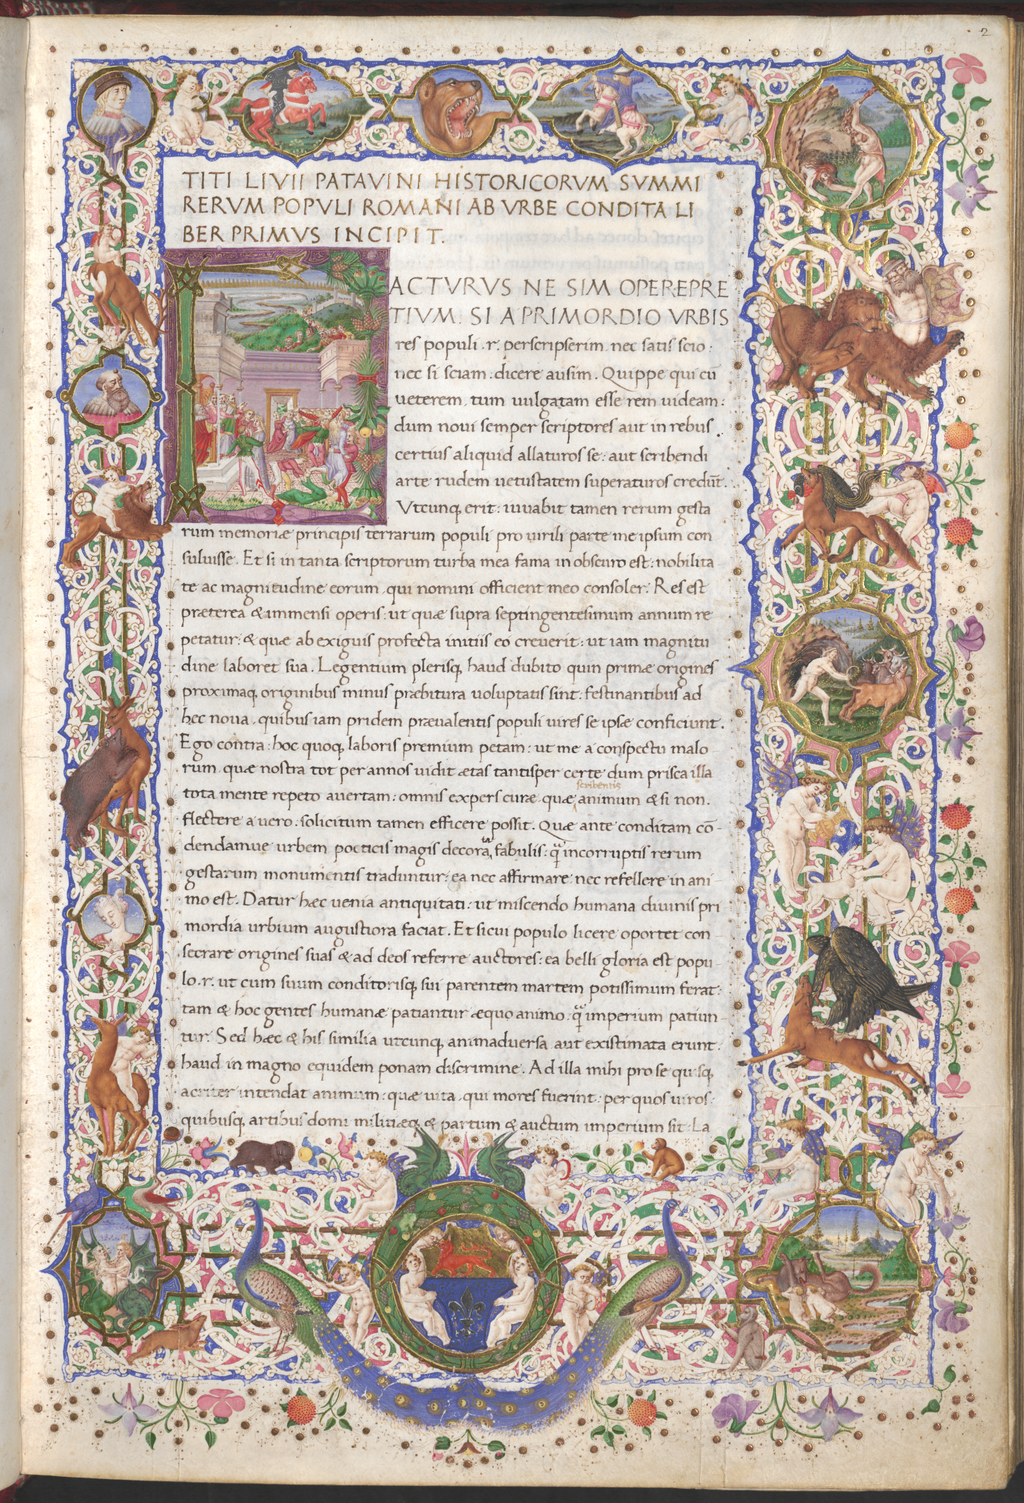 2
TITI LIVII PATAVINI HISTORICORVM SVMMI
RERVM POPVLI ROMANI AB VRBE CONDITA LI
BER PRIMVS INCIPIT.
FACTVRVS NE SIM OPEREPRE
TIVM. SI A PRIMORDIO VRBIS
res populi .r. perscripserim nec satis scio:
nec si sciam: dicere ausim. Quippe qui cū
ueterem tum uulgatam esse rem uideam:
dum noui semper scriptores aut in rebus
certius aliquid allaturos se: aut scribendi
arte rudem uetustatem superaturos credūt.
Vtcunq, erit: iuuabit tamen rerum gesta
rum memoriæ principis terrarum populi pro uirili parte me ipsum con
suluisse. Et si in tanta scriptorum turba mea fama in obscuro est: nobilita
te ac magnitudine eorum. qui nomini officient meo consoler. Res est
præterea & immensi operis: ut quæ supra septingentesimum annum re
petatur: & quæ ab exiguis profecta initiis eo creuerit: ut iam magnitu
dine laboret sua. Legentium plerisq, haud dubito quin primæ origines
proximaq, originibus minus præbitura uoluptatis sint: festinantibus ad
hec noua. quibus iam pridem præualentis populi uires se ipsæ conficiunt.
Ego contra: hoc quoq, laboris premium petam: ut me a conspectu malo
rum. quæ nostra tot per annos uidit ætas tantisper certe dum prisca illa
scribentis
tota mente repeto auertam: omnis expers curæ quæ animum & si non
flectere a uero: solicitum tamen efficere possit. Quæ ante conditam cō
dendamue urbem poeticis magis decora ta fabulis: q̄ incorruptis rerum
gestarum monumentis traduntur: ea nec affirmare nec refellere in ani
mo est. Datur hæc uenia antiquitati: ut miscendo humana diuinis pri
mordia urbium augustiora faciat. Et si cui populo licere oportet con
secrare origines suas & ad deos referre auctores: ea belli gloria est popu
lo .r. ut cum suum conditorisq, sui parentem martem potissimum ferat:
tam & hoc gentes humanæ patiantur æquo animo: q̄ imperium patiun
tur. Sed hæc & his similia utcunq, animaduersa aut existimata erunt:
haud in magno equidem ponam discrimine. Ad illa mihi pro se quisq,
acriter intendat animum: quæ uita. qui mores fuerint: per quos uiros
quibusq, artibus domi militiæq, & partum & auctum imperium sit. La